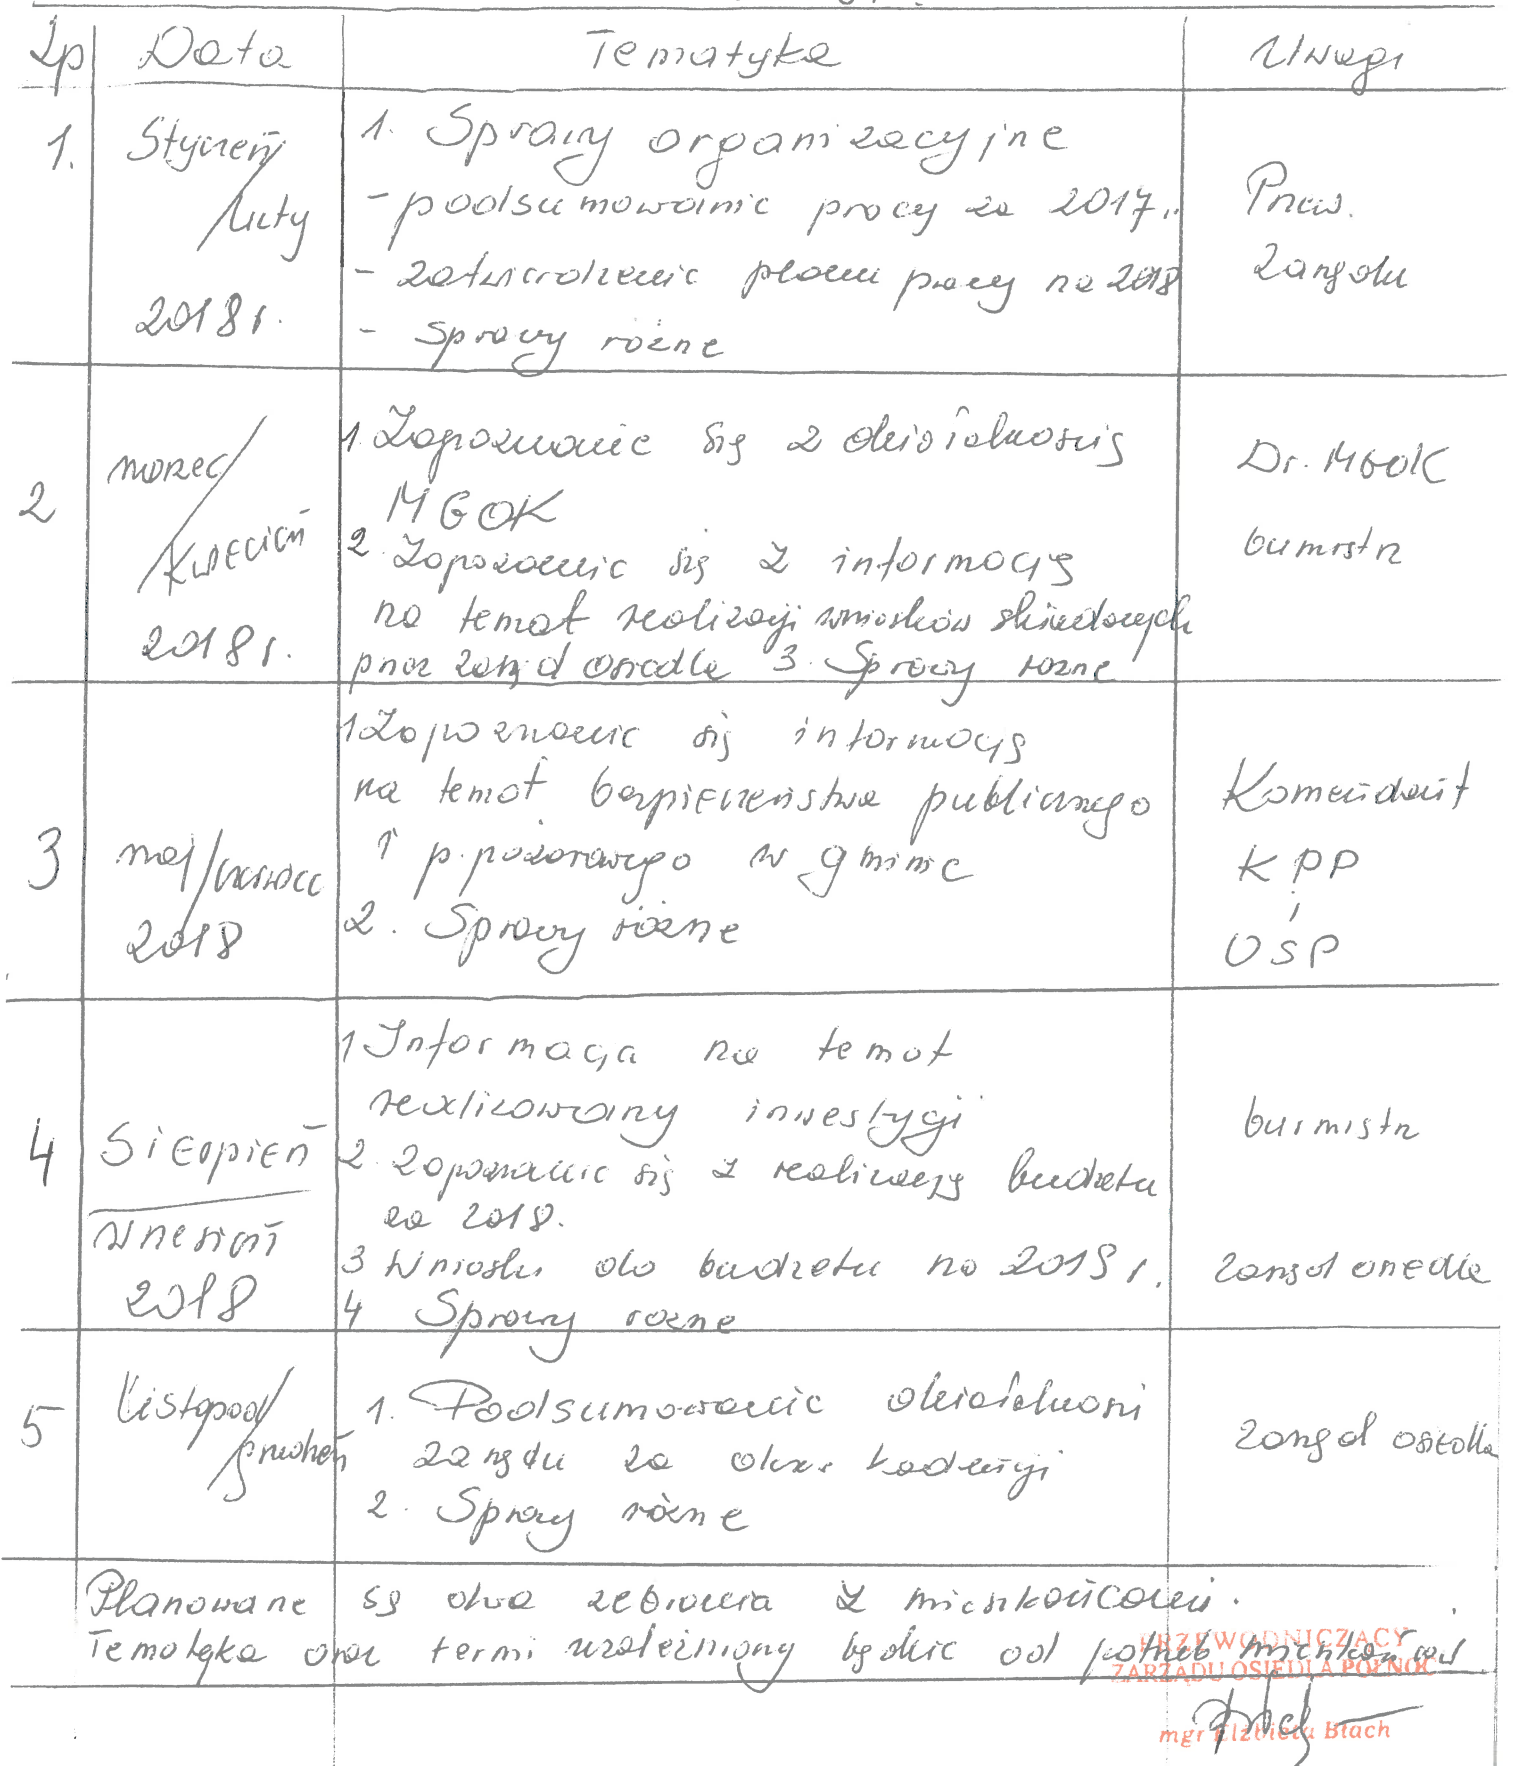 Lp Data Tematyka Uwagi
1. Styczeń / luty 2018 r.
1. Sprawy organizacyjne
- podsumowanie pracy za 2017r.
- zatwierdzenie planu pracy na 2018
- Sprawy różne
Przew.
Zarządu
2 marzec / kwiecień 2018 r.
1. Zapoznanie się z działalnością
MGOK
2. Zapoznanie się z informacją
na temat realizacji wniosków składanych
przez zarząd osiedla 3. Sprawy rozne
Dr. MGOK
bumistrz
3 maj / czerwiec 2018
1 Zapoznanie się informacją
na temat bezpieczeństwa publicznego
i p.pożarowego w gminie
2. Sprawy różne
Komendant
KPP
i
OSP
4 Sierpień
wrzesień
2018
1 Informacja na temat
realizowany inwestycji
2. Zapoznanie się z realizacją budżetu
za 2018.
3 Wnioski do budżetu na 2019 r.
4 Sprawy rozne
burmistrz
zarząd osiedla
5 listopad / grudzień
1. Podsumowanie działalności
zarządu za okres kadencji
2. Sprawy różne
zarząd osiedla
Planowane są dwa zebrania z mieszkańcami.
Tematyka oraz termi uzależniony będzie od potrzeb mieszkańców.
PRZEWODNICZĄCY
ZARZĄDU OSIEDLA PÓŁNOC
mgr Elżbieta Błach